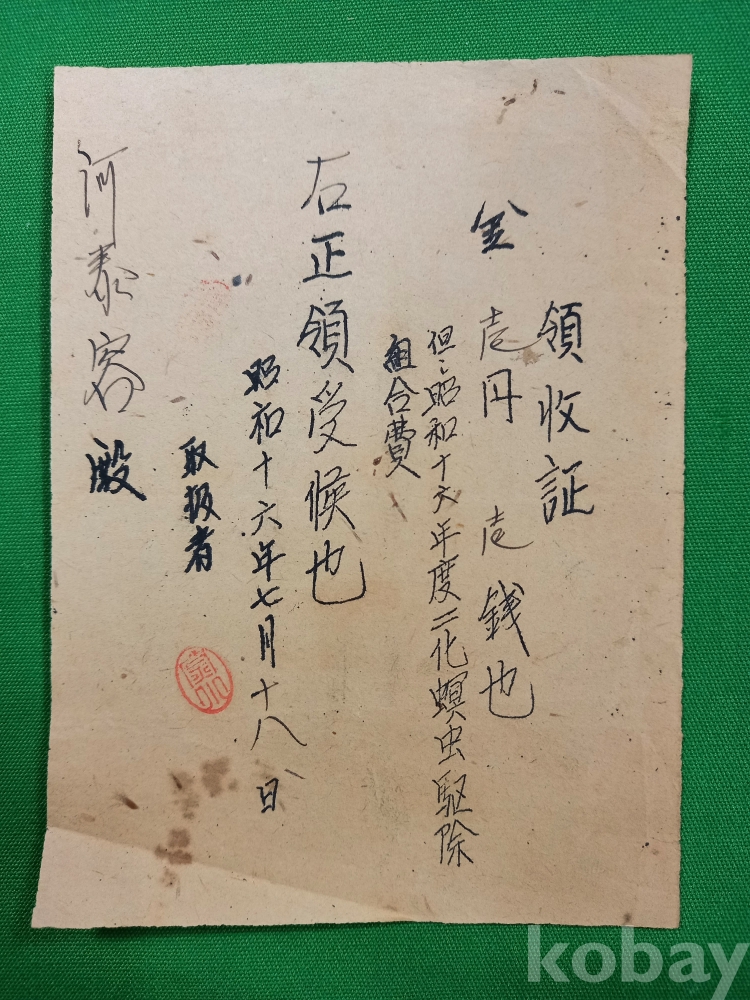 領収証
金壱円壱銭也
但シ昭和十六年度二化螟虫駆除
組合費
右正領受候也
昭和十六年七月十八日
取扱者
河泰容殿
kobay